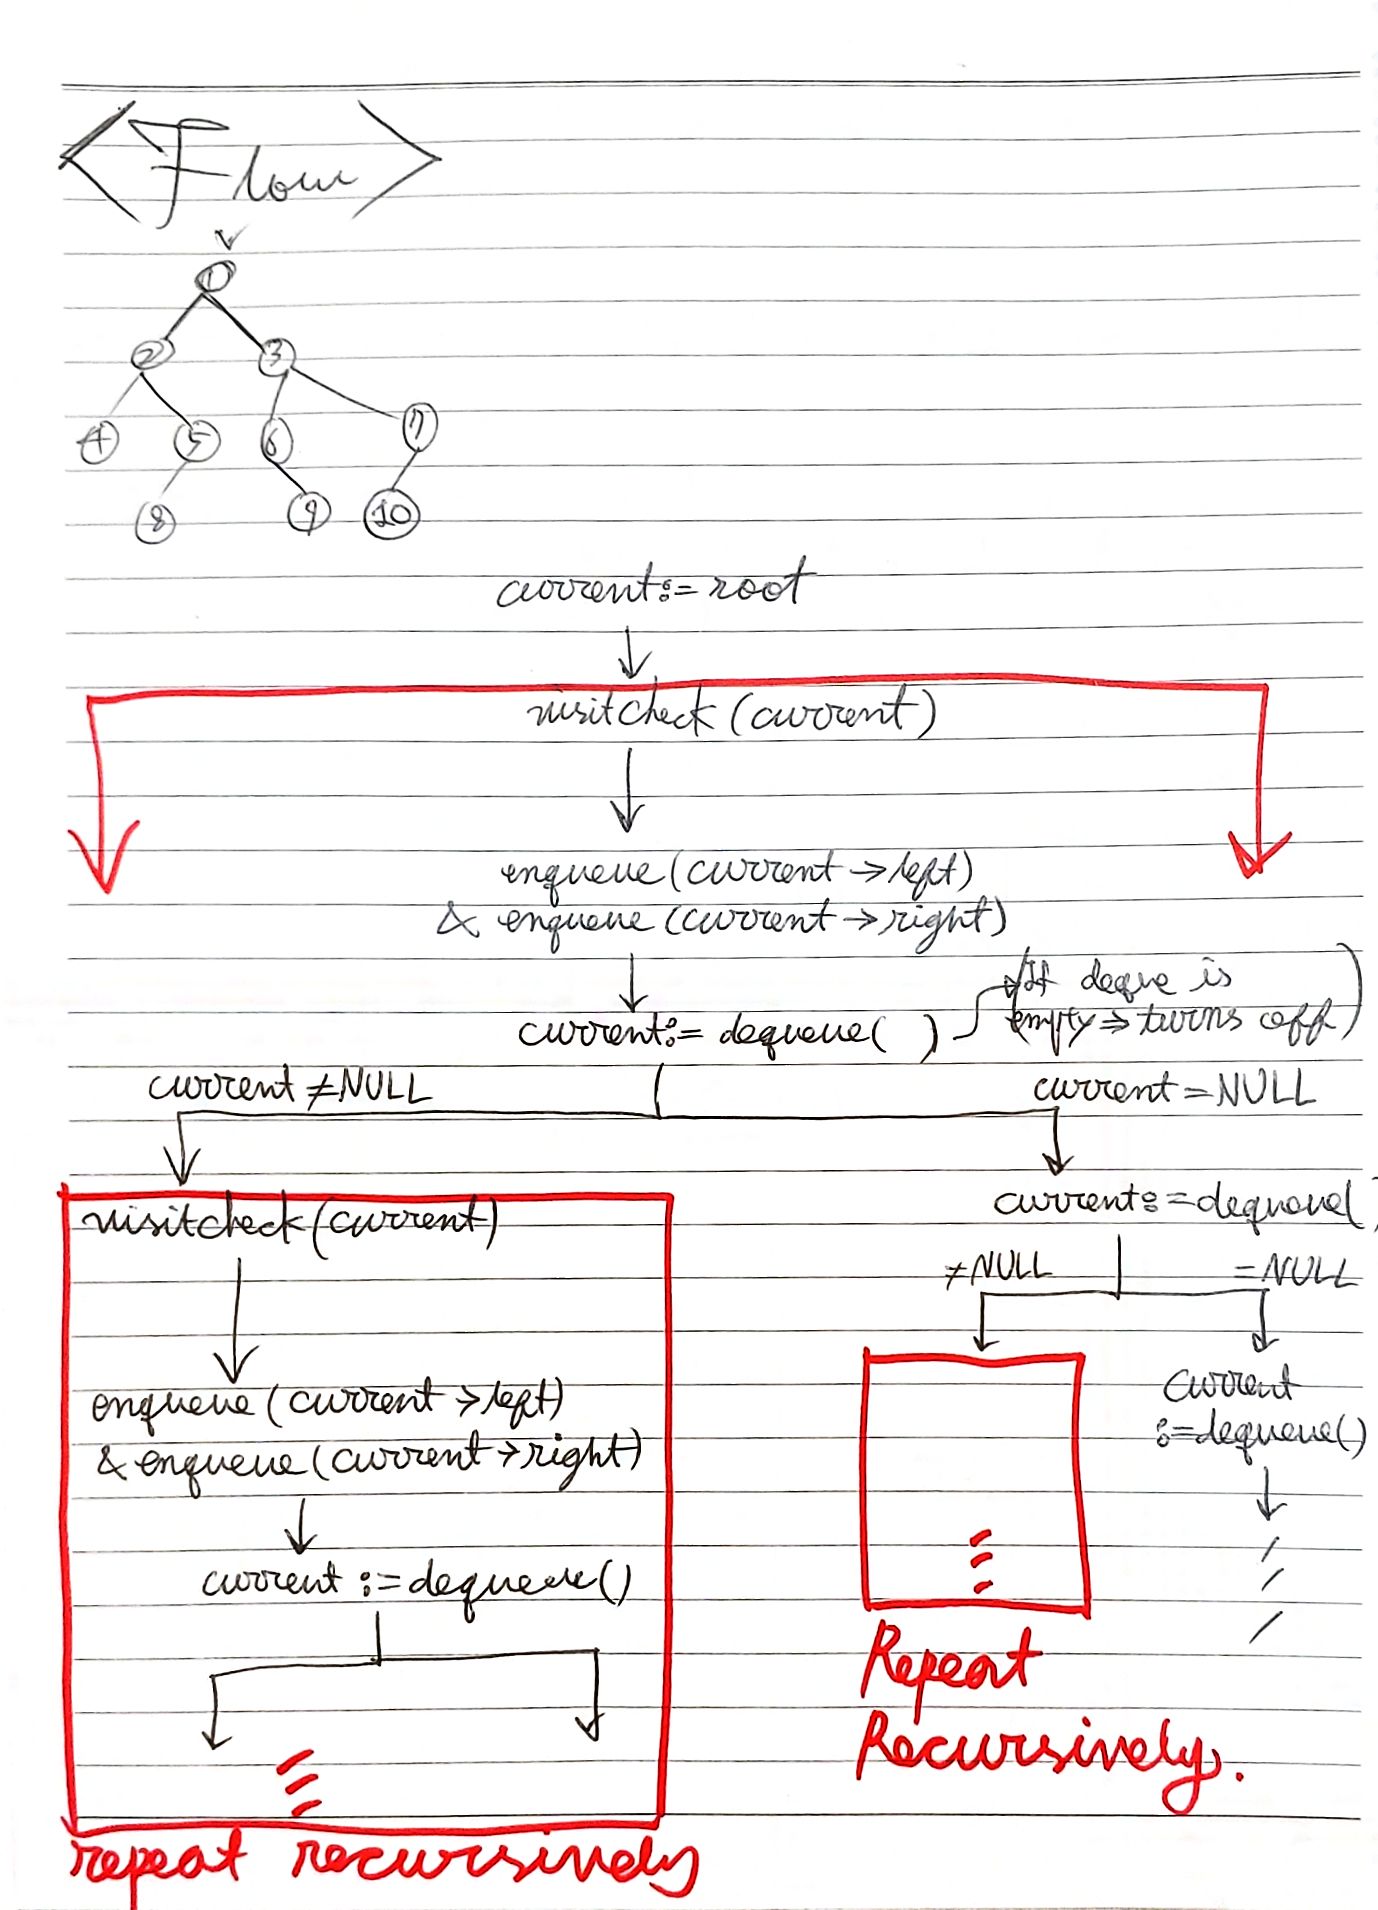 <Flow>
1
2 3
4 5 6 7
8 9 10
current:=root
visitcheck(current)
enqueue(current→left)
& enqueue(current→right)
current:= dequeue( )
(If deque is
empty⇒ turns off)
current ≠NULL
current=NULL
visitcheck(current)
enqueue(current→left)
& enqueue(current→right)
current :=dequeue()
repeat recursively
current:=dequeue()
≠NULL =NULL
current
:=dequeue()
Repeat
Recursively.